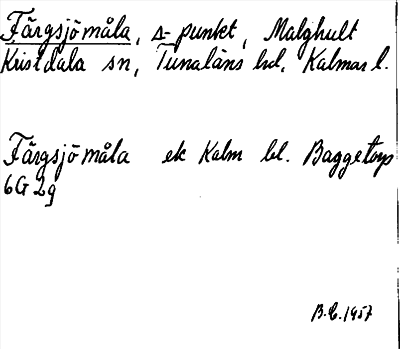 Färgsjömåla, s-punkt, Malghult
Kristdala sn, Tunaläns hd, Kalmar l.
Färgsjömåla ek Kalm bl. Baggetorp
6G 2g
B.E. 1957